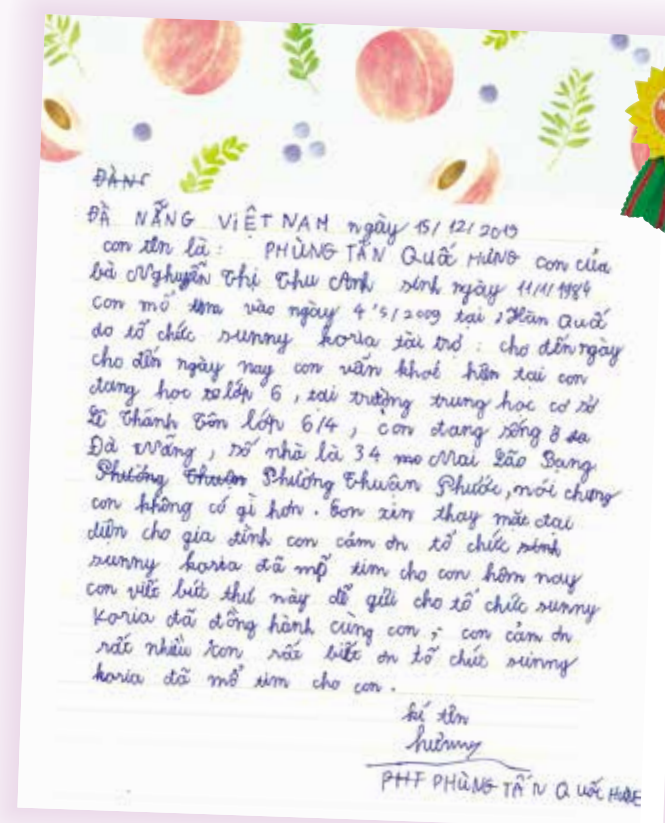 ĐÀNG
ĐÀ NẴNG VIỆT NAM ngày 15/12/2019
con tên là: PHÙNG TẤN QUỐC HƯNG con của
bà Nghuyễn Thị Thu Anh sinh ngày 11/1/1984
con mổ tim vào ngày 4/5/2009 tại Hàn Quốc
do tổ chức sunny koria tài trợ : cho đến ngày
cho đến ngày nay con vẫn khoẻ hiện tai con
đang học lớp 6, tai trường trung học cơ sở
Lê Thánh Tôn lớp 6/4, con đang sống ở
Đà Nẵng, số nhà là 34 Mai Lão Bạng
Phường Thuận Phường Thuận Phước, nói chung
con không có gì hơn. Con xin thay mặt đại
diện cho gia đình con cảm ơn tổ chức
sunny koria đã mổ tim cho con hôm nay
con viết bức thư này để gửi cho tổ chức sunny
Koria đã đồng hành cùng con, con cảm ơn
rất nhiều con rất biết ơn tổ chức sunny
koria đã mổ tim cho con.
kí tên
hưng
PHT PHÙNG TẤN QUỐC HƯNG